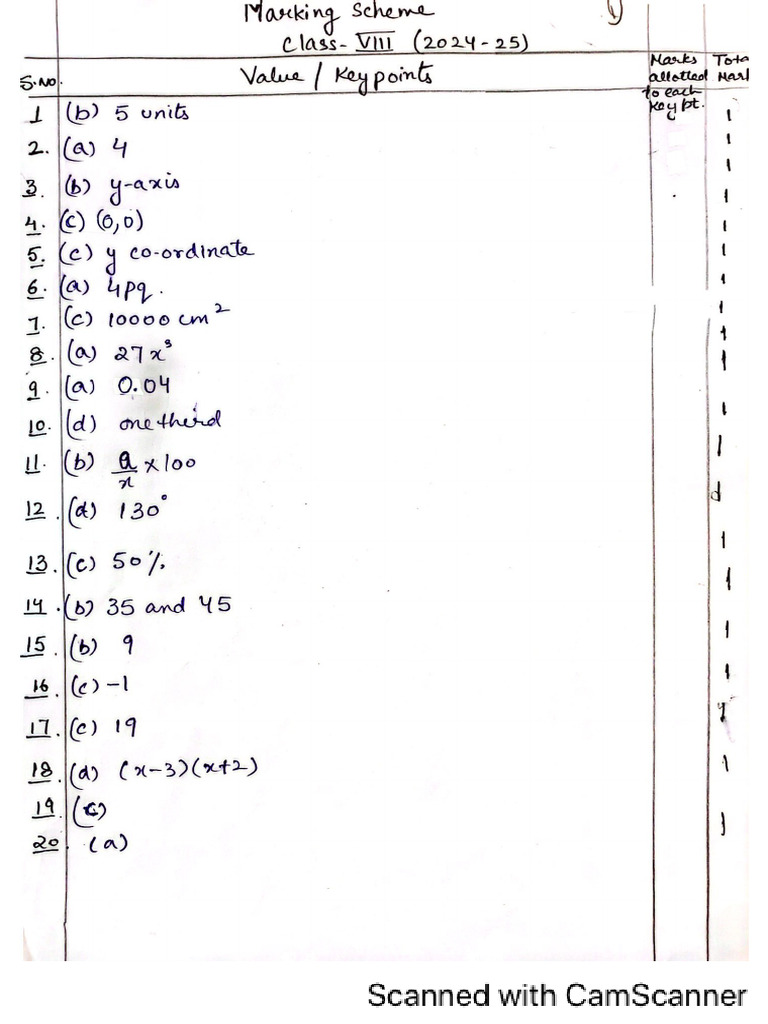 Marking Scheme
1
Class- VIII (2024-25)
S.No. Value / Key points Marks allotted to each key pt. Tota Mark
1 (b) 5 units 1
2. (a) 4 1
3. (b) y-axis 1
4. (c) (0,0) 1
5. (c) y co-ordinate 1
6. (a) 4pq. 1
7. (c) 10000 cm² 1
8. (a) 27x³ 1
9. (a) 0.04 1
10. (d) one third 1
11. (b) a/x × 100 1
12. (d) 130° 1
13. (c) 50% 1
14. (b) 35 and 45 1
15. (b) 9 1
16. (c) -1 1
17. (c) 19 1
18. (d) (x-3)(x+2) 1
19. (c)
20. (a) 1
Scanned with CamScanner